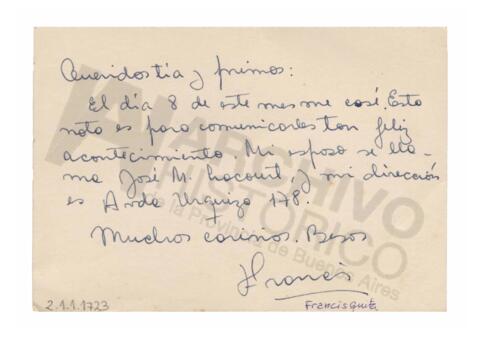 Queridos tia y primos:
El día 8 de este mes me casé. Esta
nota es para comunicarles tan feliz
acontecimiento. Mi esposo se lla-
ma José M. Lacourt y mi dirección
es Avda Urquiza 178.
Muchos cariños. Besos
Francis
2.1.1.1723
Francisquita
ARCHIVO
HISTÓRICO
de la Provincia de Buenos Aires